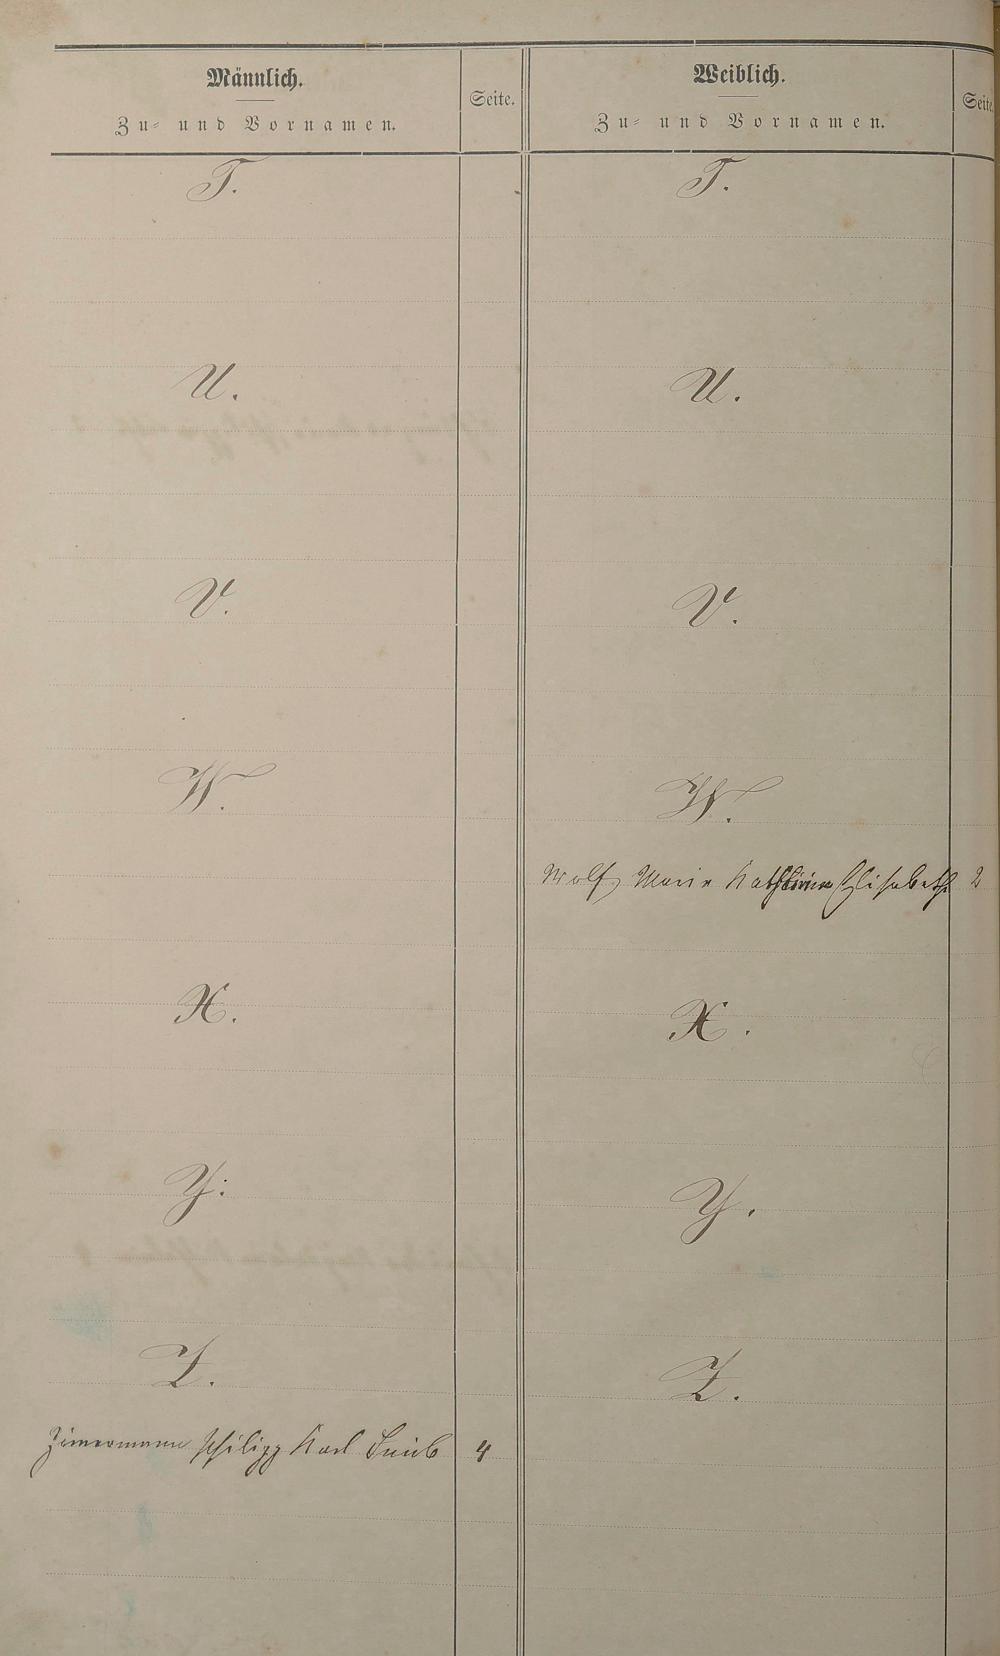 Männlich.
Zu- und Vornamen.
Seite.
T.
U.
V.
W.
X.
Y.
Z.
Zimermann Philipp Karl 4
Weiblich.
Zu- und Vornamen.
Seite.
T.
U.
V.
W.
Wolf, Marie Katharina Elisabeth 2
X.
Y.
Z.